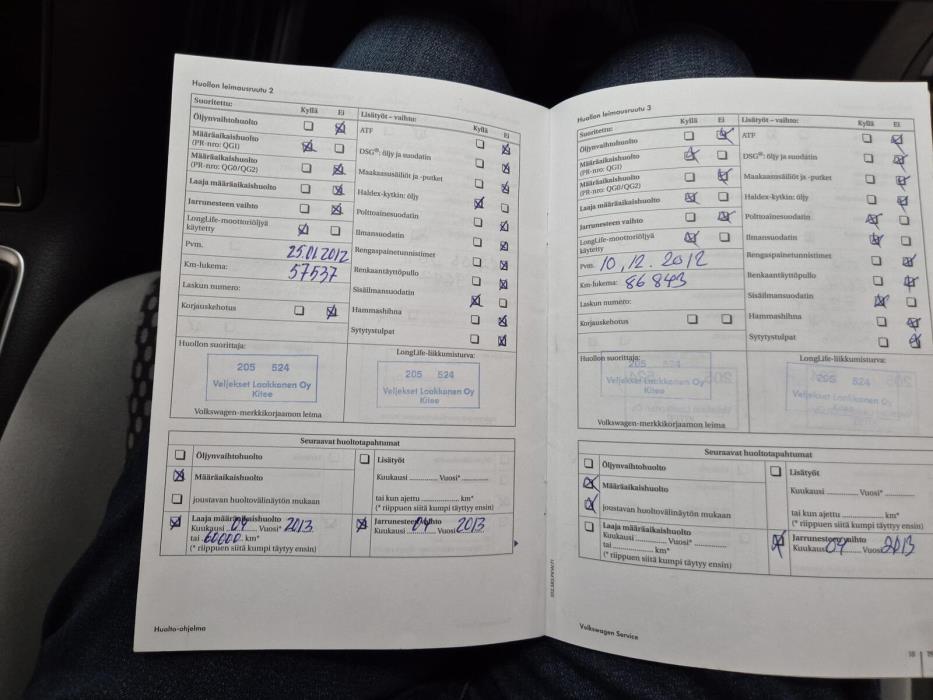 Huollon leimausruutu 2
Suoritettu: Kyllä Ei
Öljynvaihtohuolto
Määräaikaishuolto
(PR-nro: QG1)
Määräaikaishuolto
(PR-nro: QG0/QG2)
Laaja määräaikaishuolto
Jarrunesteen vaihto
LongLife-moottoriöljyä
käytetty
Pvm. 25.01.2012
Km-lukema: 57537
Laskun numero:
Korjauskehotus
Lisätyöt – vaihto: Kyllä Ei
ATF
DSG®: öljy ja suodatin
Maakaasusäiliöt ja -putket
Haldex-kytkin: öljy
Polttoainesuodatin
Ilmansuodatin
Rengaspainetunnistimet
Renkaantäyttöpullo
Sisäilmansuodatin
Hammashihna
Sytytystulpat
Huollon suorittaja:
205 524
Veljekset Laakkonen Oy
Kitee
Volkswagen-merkkikorjaamon leima
LongLife-liikkumisturva:
205 524
Veljekset Laakkonen Oy
Kitee
Seuraavat huoltotapahtumat
Öljynvaihtohuolto
Määräaikaishuolto
joustavan huoltovälinäytön mukaan
Laaja määräaikaishuolto
Kuukausi 04 Vuosi* 2013
tai 60000 km*
(* riippuen siitä kumpi täytyy ensin)
Lisätyöt
Kuukausi .............. Vuosi* ..............
tai kun ajettu .............. km*
(* riippuen siitä kumpi täytyy ensin)
Jarrunesteen vaihto
Kuukausi 04 Vuosi 2013
Huolto-ohjelma
Huollon leimausruutu 3
Suoritettu: Kyllä Ei
Öljynvaihtohuolto
Määräaikaishuolto
(PR-nro: QG1)
Määräaikaishuolto
(PR-nro: QG0/QG2)
Laaja määräaikaishuolto
Jarrunesteen vaihto
LongLife-moottoriöljyä
käytetty
Pvm. 10.12.2012
Km-lukema: 86843
Laskun numero:
Korjauskehotus
Lisätyöt – vaihto: Kyllä Ei
ATF
DSG®: öljy ja suodatin
Maakaasusäiliöt ja -putket
Haldex-kytkin: öljy
Polttoainesuodatin
Ilmansuodatin
Rengaspainetunnistimet
Renkaantäyttöpullo
Sisäilmansuodatin
Hammashihna
Sytytystulpat
Huollon suorittaja:
205 524
Veljekset Laakkonen Oy
Kitee
Volkswagen-merkkikorjaamon leima
LongLife-liikkumisturva:
205 524
Veljekset Laakkonen Oy
Kitee
Seuraavat huoltotapahtumat
Öljynvaihtohuolto
Määräaikaishuolto
joustavan huoltovälinäytön mukaan
Laaja määräaikaishuolto
Kuukausi .............. Vuosi* ..............
tai .............. km*
(* riippuen siitä kumpi täytyy ensin)
Lisätyöt
Kuukausi .............. Vuosi* ..............
tai kun ajettu .............. km*
(* riippuen siitä kumpi täytyy ensin)
Jarrunesteen vaihto
Kuukausi 04 Vuosi 2013
Volkswagen Service